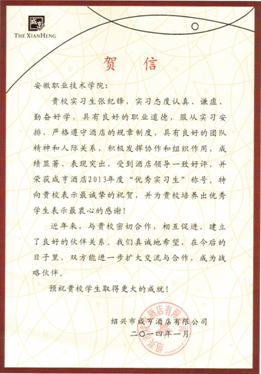 THE XIANHENG
贺信
安徽职业技术学院：
贵校实习生张纪锋，实习态度认真、谦虚、
勤奋好学，具有良好的职业道德，服从实习安
排，严格遵守酒店的规章制度，具有良好的团队
精神和人际关系，积极发挥协作和组织作用，成
绩显著、表现突出，受到酒店领导一致好评，并
荣获咸亨酒店2013年度“优秀实习生”称号。特
向贵校表示最诚挚的祝贺，并为贵校培养出优秀
学生表示最衷心的感谢！
近年来，与贵校密切合作，相互促进，建立
了良好的伙伴关系。我们真诚地希望，在今后的
日子里，双方能进一步扩大交流与合作，成为战
略伙伴。
预祝贵校学生取得更大的成就！
绍兴市咸亨酒店有限公司
二〇一四年一月